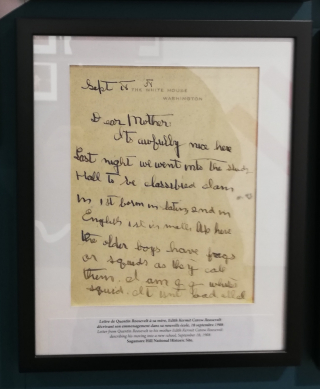 Sept 18
THE WHITE HOUSE
WASHINGTON
Dear Mother
Its awfully nice here
Last night we went into the Study
Hall to be classified I am
in 1st form in latin and in
English 1st in math. Up here
the older boys have fags
or squids as they call
them. I am a
squid.
Lettre de Quentin Roosevelt à sa mère, Edith Kermit Carow Roosevelt
décrivant son emménagement dans sa nouvelle école, 18 septembre 1908
Letter from Quentin Roosevelt to his mother Edith Kermit Carow Roosevelt
describing his moving into a new school, September 18, 1908
Sagamore Hill National Historic Site.